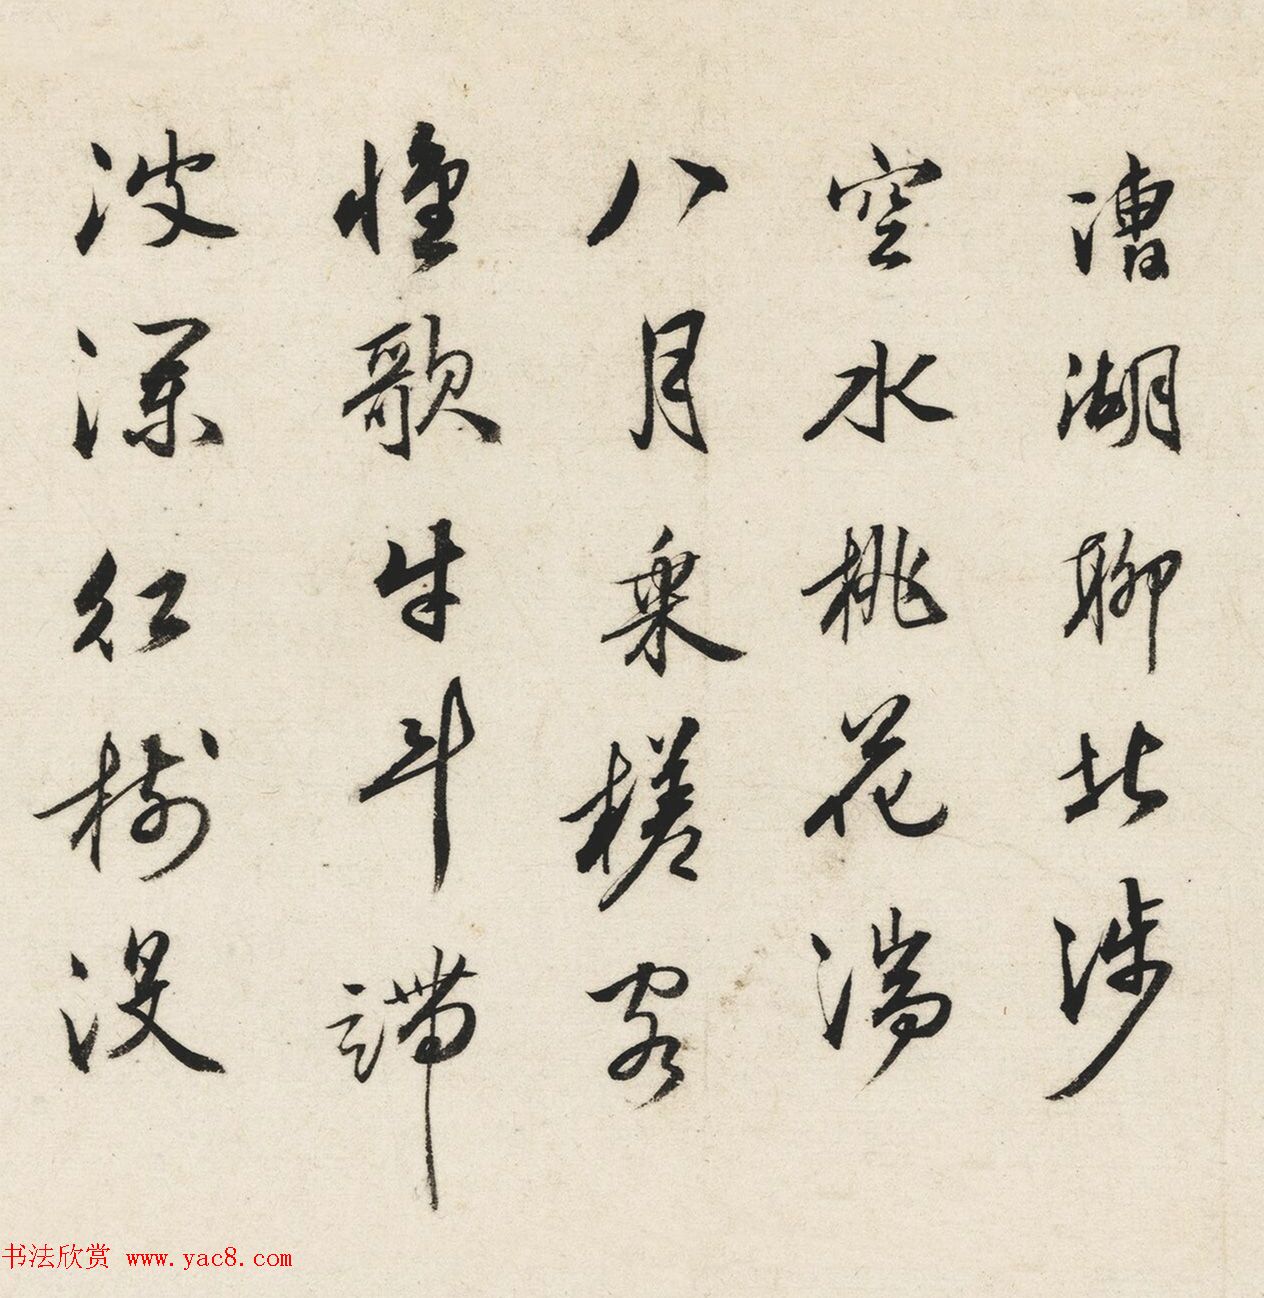 漕湖聊北涉
空水桃花湍
八月乘槎客
櫂歌牛斗端
波深紅樹没
书法欣赏 www.yac8.com